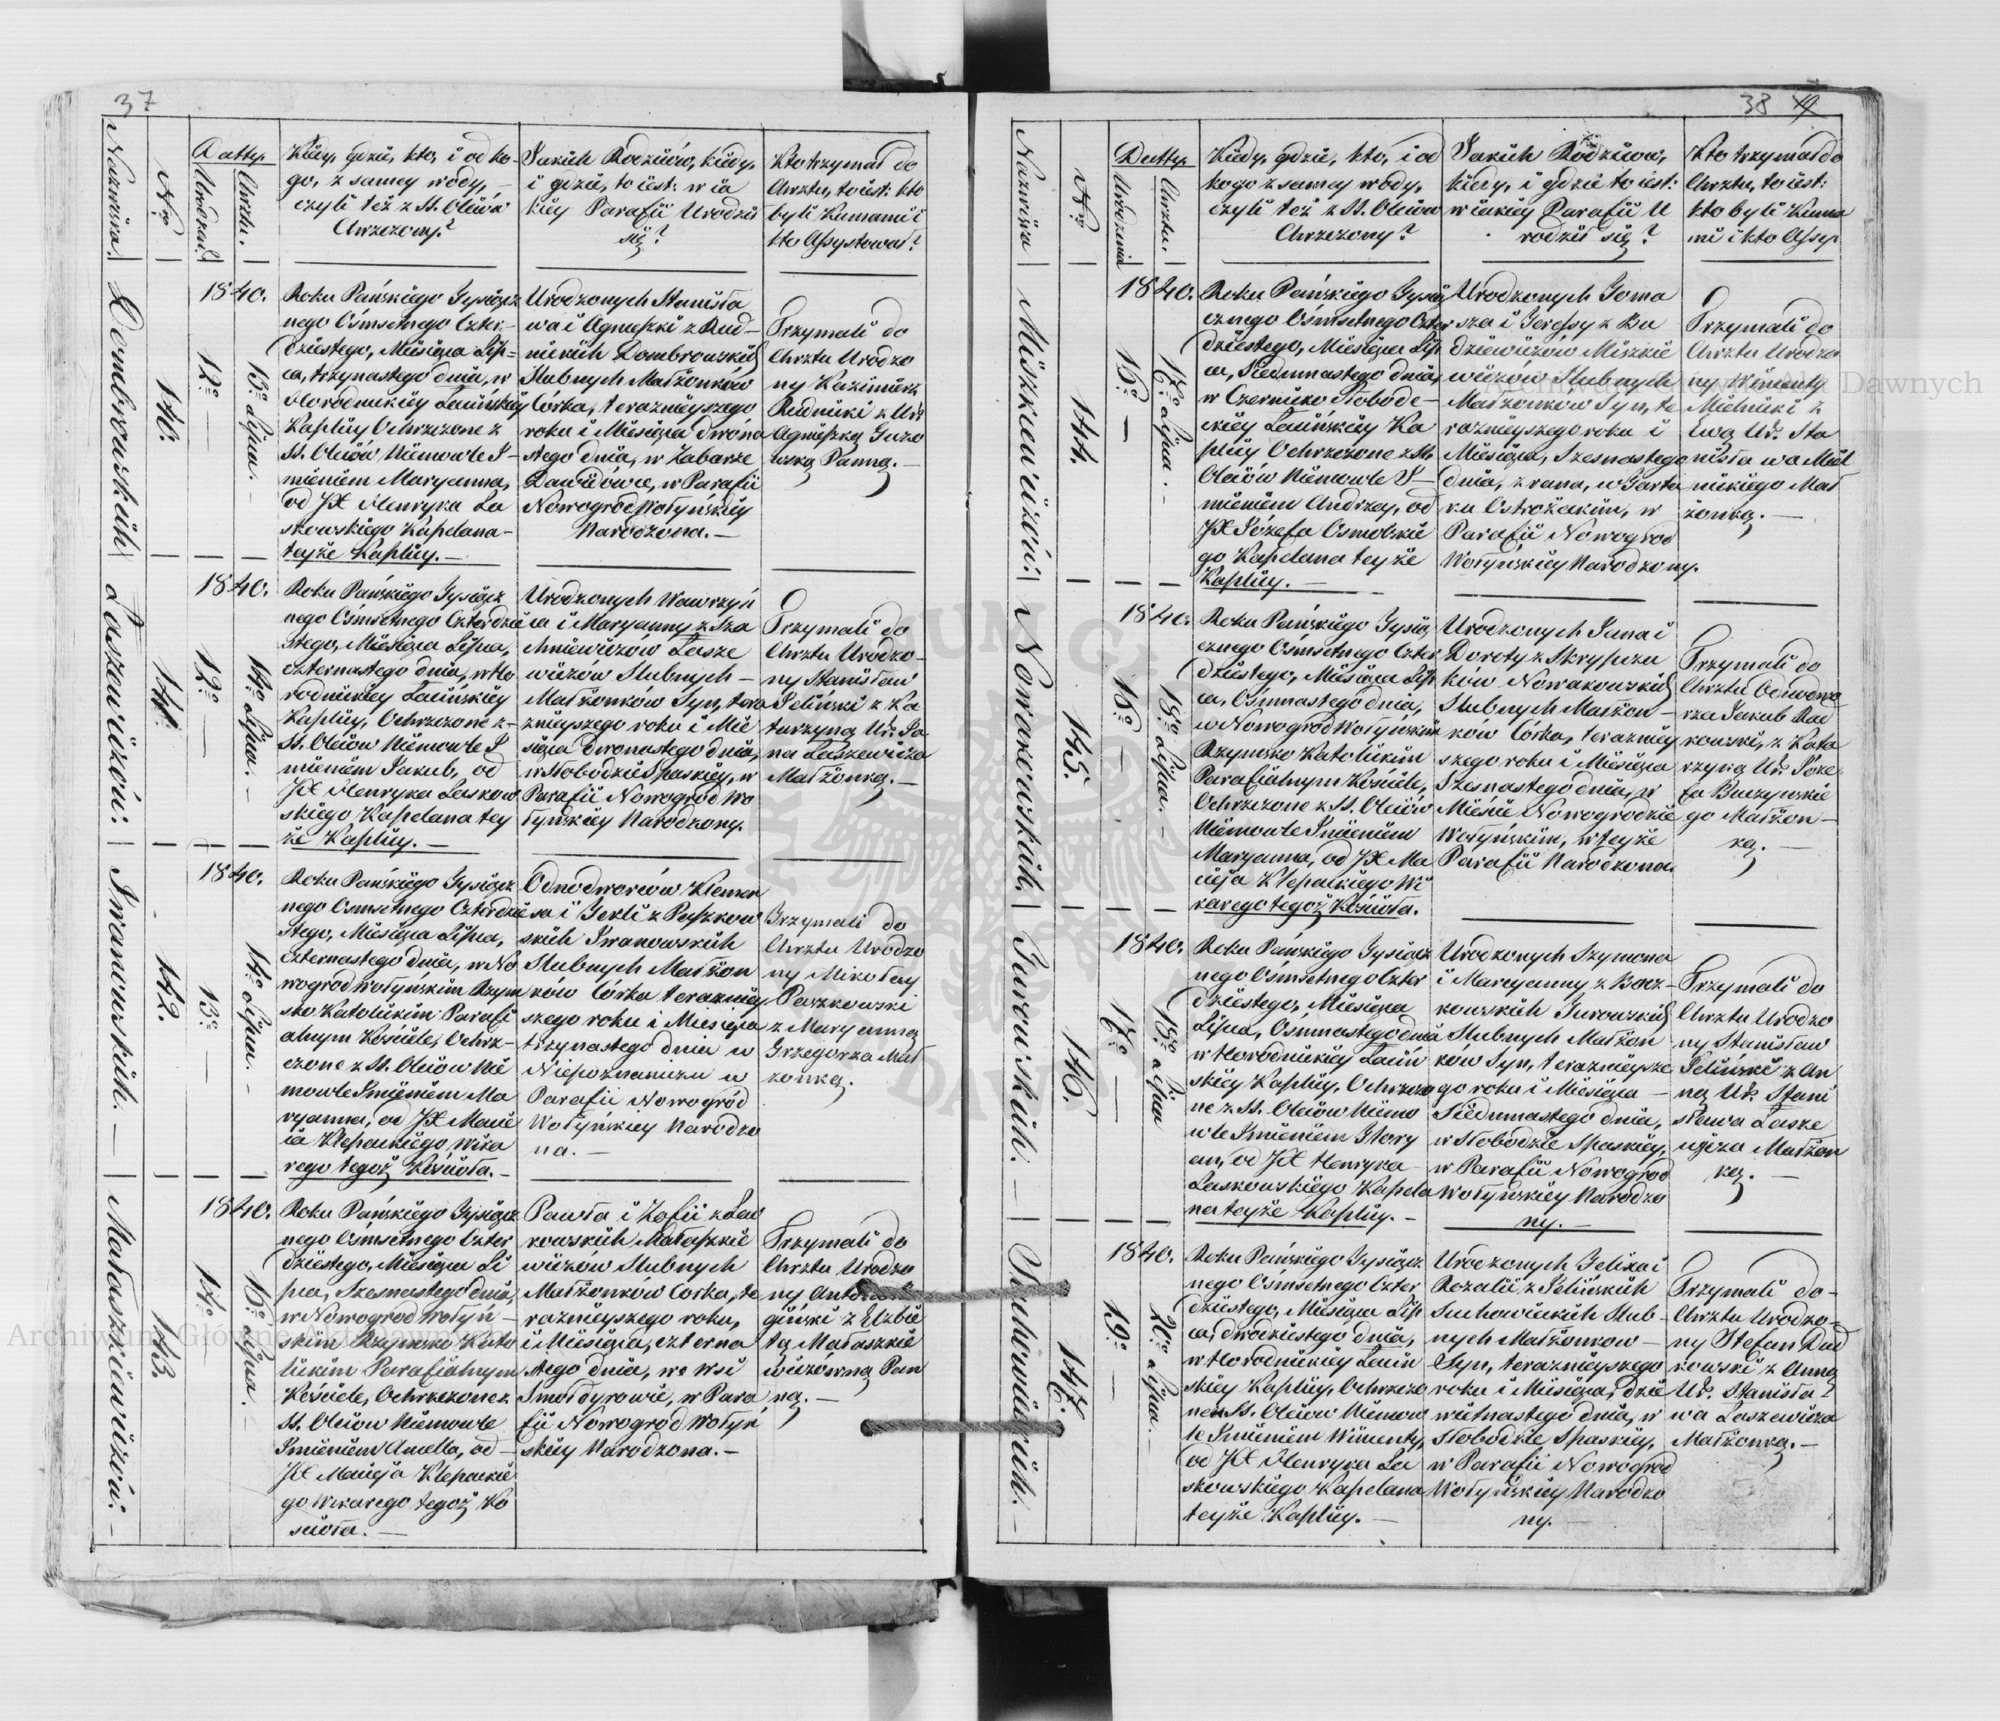 37
Nazwiska.
Nro
Datty.
Urodzen.
Chrztu.
Kiedy, gdzie, kto, i od ko-
go, z samey wody, -
czyli też z SS. Oleiów
Chrzczony?
Jakich Rodziców, kiedy,
i gdzie, to iest: w ia
kiey Parafii Urodził
się?
Kto trzymał do
Chrztu, to iest: kto
byli Kumami i
kto Assystował?
Dombrowskich
140.
1840.
12o
13o Lipca.
Roku Pańskiego Tysiącz
nego Ośmsetnego Czter-
dziestego, Miesiąca Lip-
ca, trzynastego dnia, w
Horodnickiey Łacińskiey
Kaplicy Ochrzczone z
SS. Oleiów Niemowle I-
mieniem Maryanna,
od JX Henryka La
skowskiego Kapelana-
teyże Kaplicy. -
Urodzonych Stanisła
wa i Agnieszki z Rud-
nickich Dombrowskich
Slubnych Małżonków
Córka, terazniejszego
roku i Miesiąca dwóna
stego dnia, w Zabarze
Dawidówce, w Parafii
Nowogród Wołyńskiey
Narodzona. -
Trzymali do
Chrztu Urodzo
ny Kazimierz
Rudnicki z Ur:
Agnieszką Guzo
wską Panną. -
Łaszewiczów:
141.
1840.
12o
14o Lipca. -
Roku Pańskiego Tysiącz
nego Ośmsetnego Czterdzie
stego, Miesiąca Lipca,
czternastego dnia, w Ho
rodnickiey Łacińskiey
Kaplicy, Ochrzczone z-
SS. Oleiów Niemowle I
mieniem Jakub, od
JX Henryka Laskow
skiego Kapelana tey
że Kaplicy. -
Urodzonych Wawrzyń
ca i Maryanny z Sza
chniewiczów Łasze
wiczów Slubnych -
Małżonków Syn, tera
znieyszego roku i Mie
siąca dwonastego dnia,
w Słobodzie Spaskiey, w
Parafii Nowogród Wo
łyńskiey Narodzony.
Trzymali do
Chrztu Urodzo-
ny Stanisław
Jeliński z Ka
tarzyną Ur: Ja
na Łaszewicza
Małżonką. -
Iwanowskich. -
142.
1840.
13o
14o Lipca. -
Roku Pańskiego Tysiącz
nego Ośmsetnego Czterdzie
stego, Miesiąca Lipca,
czternastego dnia, w No
wogród Wołyńskim Rzym
sko Katolickim Parafi
alnym Kościele, Ochrz-
czone z SS. Oleiów Nie
mowle Imieniem Ma
ryanna, od JX Macie
ia Klepackiego, Wika
rego tegoż Kościoła. -
Odnodworców Klemen
sa i Tekli z Paszkow
skich Iwanowskich
Slubnych Małżon
kow Córka terazniey
szego roku i Miesiąca
trzynastego dnia w
Niepoznaniczu w
Parafii Nowogród
Wołyńskiey Narodzo
na. -
Trzymali do
Chrztu Urodzo
ny Mikołay
Paszkowski
z Maryanną
Grzegorza Mał
zonką.
Matuszkiewiczów: -
143.
1840.
14o
16o Lipca. -
Roku Pańskiego Tysiącz
nego Ośmsetnego Czter
dziestego, Miesiąca Li
pca, Szesnastego dnia,
w Nowogród Wołyń-
skim Rzymsko Kato
lickim Parafialnym
Kościele, Ochrzczone z
SS. Oleiów Niemowle
Imieniem Amella, od-
JX Macieja Klepackie
go Wikarego tegoż Ko
scioła. -
Pawła i Zofii z Law
kowskich Matuszkie
wiczów Slubnych
Małżonków Corka, te
raznieyszego roku,
i Miesiąca, czterna
stego dnia, we wsi
Smołdyrowie, w Para
fii Nowogród Wołyń
skiey Narodzona. -
Trzymali do
Chrztu Urodzo
ny Antoni
giński z Elzbie
tą Matuszkie
wiczowną Pan
ną. -
38 49
Nazwiska
Nro
Datty.
Urodzenia
Chrztu.
Kiedy, gdzie, kto, i od
kogo z samey wody,
czyli też z SS. Oleiów
Chrzczony?
Jakich Rodziców,
kiedy, i gdzie to iest:
w iakiey Parafii U
rodził się?
Kto trzymał do
Chrztu, to iest:
kto byli Kuma
mi i kto Assys
Miszkiewiczów:
144.
1840.
16o -
17o Lipca. -
Roku Pańskiego Tysią
cznego Ośmsetnego Czter
dziestego, Miesiąca Lip
ca, Siedmnastego dnia,
w Czernicko Słobode-
ckiey Łacińskiey Ka
plicy Ochrzczone z SS.
Oleiów Niemowle I-
mieniem Andrzey, od
JX Józefa Osmolskie
go Kapelana teyże
Kaplicy. -
Urodzonych Toma
sza i Teressy z Bu
dziewiczów Miszkie
wiczów Slubnych
Małzonkow Syn, te
raznieyszego roku i
Miesiąca, Szesnastego
dnia, z rana, w Tarta
ku Ostrożackim, w
Parafii Nowogrod
Wołyńskiey Narodzony.
Trzymali do
Chrztu Urodzo
ny Wincenty
Mielnicki z
Ewą Ur: Sta
nisława Miel
nickiego Mał
żonką. -
Nowakowskich.
145.
1840.
16o -
18o Lipca. -
Roku Pańskiego Tysią
cznego Ośmsetnego Czter
dziestego, Miesiąca Lip
ca, Ośmnastego dnia,
w Nowogród Wołyńskim
Rzymsko Katolickim
Parafialnym Kościele,
Ochrzczone z SS. Oleiów
Niemowle Imieniem
Maryanna, od JX Ma
cieja Klepackiego Wi
karego tegoż Kościoła.
Urodzonych Jana i
Doroty z Skrypcza
ków Nowakowskich
Slubnych Małżon-
ków Córka, terazniey
szego roku i Miesiąca
Szesnastego dnia, w
Mieście Nowogrodzie
Wołyńskim, w teyże
Parafii Narodzona.
Trzymali do
Chrztu Odnodwo
rza Jakub Rad
kowski, z Kata
rzyną Ur: Joze
fa Buczynskie
go Małżon-
ką. -
Turowskich. -
146.
1840.
17o
18o Lipca
Roku Pańskiego Tysiącz
nego Ośmsetnego Czter
dziestego, Miesiąca
Lipca, Ośmnastego dnia
w Horodnickiey Łaciń
skiey Kaplicy, Ochrzczo
ne z SS. Oleiów Niemo
wle Imieniem Flory
an, od JX Henryka
Laskowskiego Kapela
na teyże Kaplicy. -
Urodzonych Szymona
i Maryanny z Bocz-
kowskich Turowskich
Slubnych Małżon
ków Syn, teraznieysze
go roku i Miesiąca -
Siedmnastego dnia,
w Słobodzie Spaskiey,
w Parafii Nowogród
Wołyńskiey Narodzo
ny. -
Trzymali do
Chrztu Urodzo
ny Stanisław
Jeliński z An
ną Ur: Stani
sława Łasze
wicza Małżon
ką. -
Suchowieckich. -
147.
1840.
19o
20o Lipca. -
Roku Pańskiego Tysiącz
nego Ośmsetnego Czter
dziestego, Miesiąca Lip
ca, dwodziestego dnia,
w Horodnickiey Łaciń
skiey Kaplicy, Ochrzczo
ne z SS. Oleiów Niemow
le Imieniem Wincenty,
od JX Henryka La
skowskiego Kapelana
teyże Kaplicy. -
Urodzonych Felixa i
Rozalii z Jelińskich
Suchowieckich Slub-
nych Małżonkow -
Syn, teraznieyszego
roku i Miesiąca, dzie
wietnastego dnia, w
Słobodzie Spaskiey,
w Parafii Nowogród
Wołyńskiey Narodzo
ny. -
Trzymali do-
Chrztu Urodzo-
ny Stefan Rud
kowski z Anną
Ur: Stanisła-
wa Łaszewicza
Małżonką. -
Archiwum Główne Akt Dawnych
Archiwum Główne Akt Dawnych